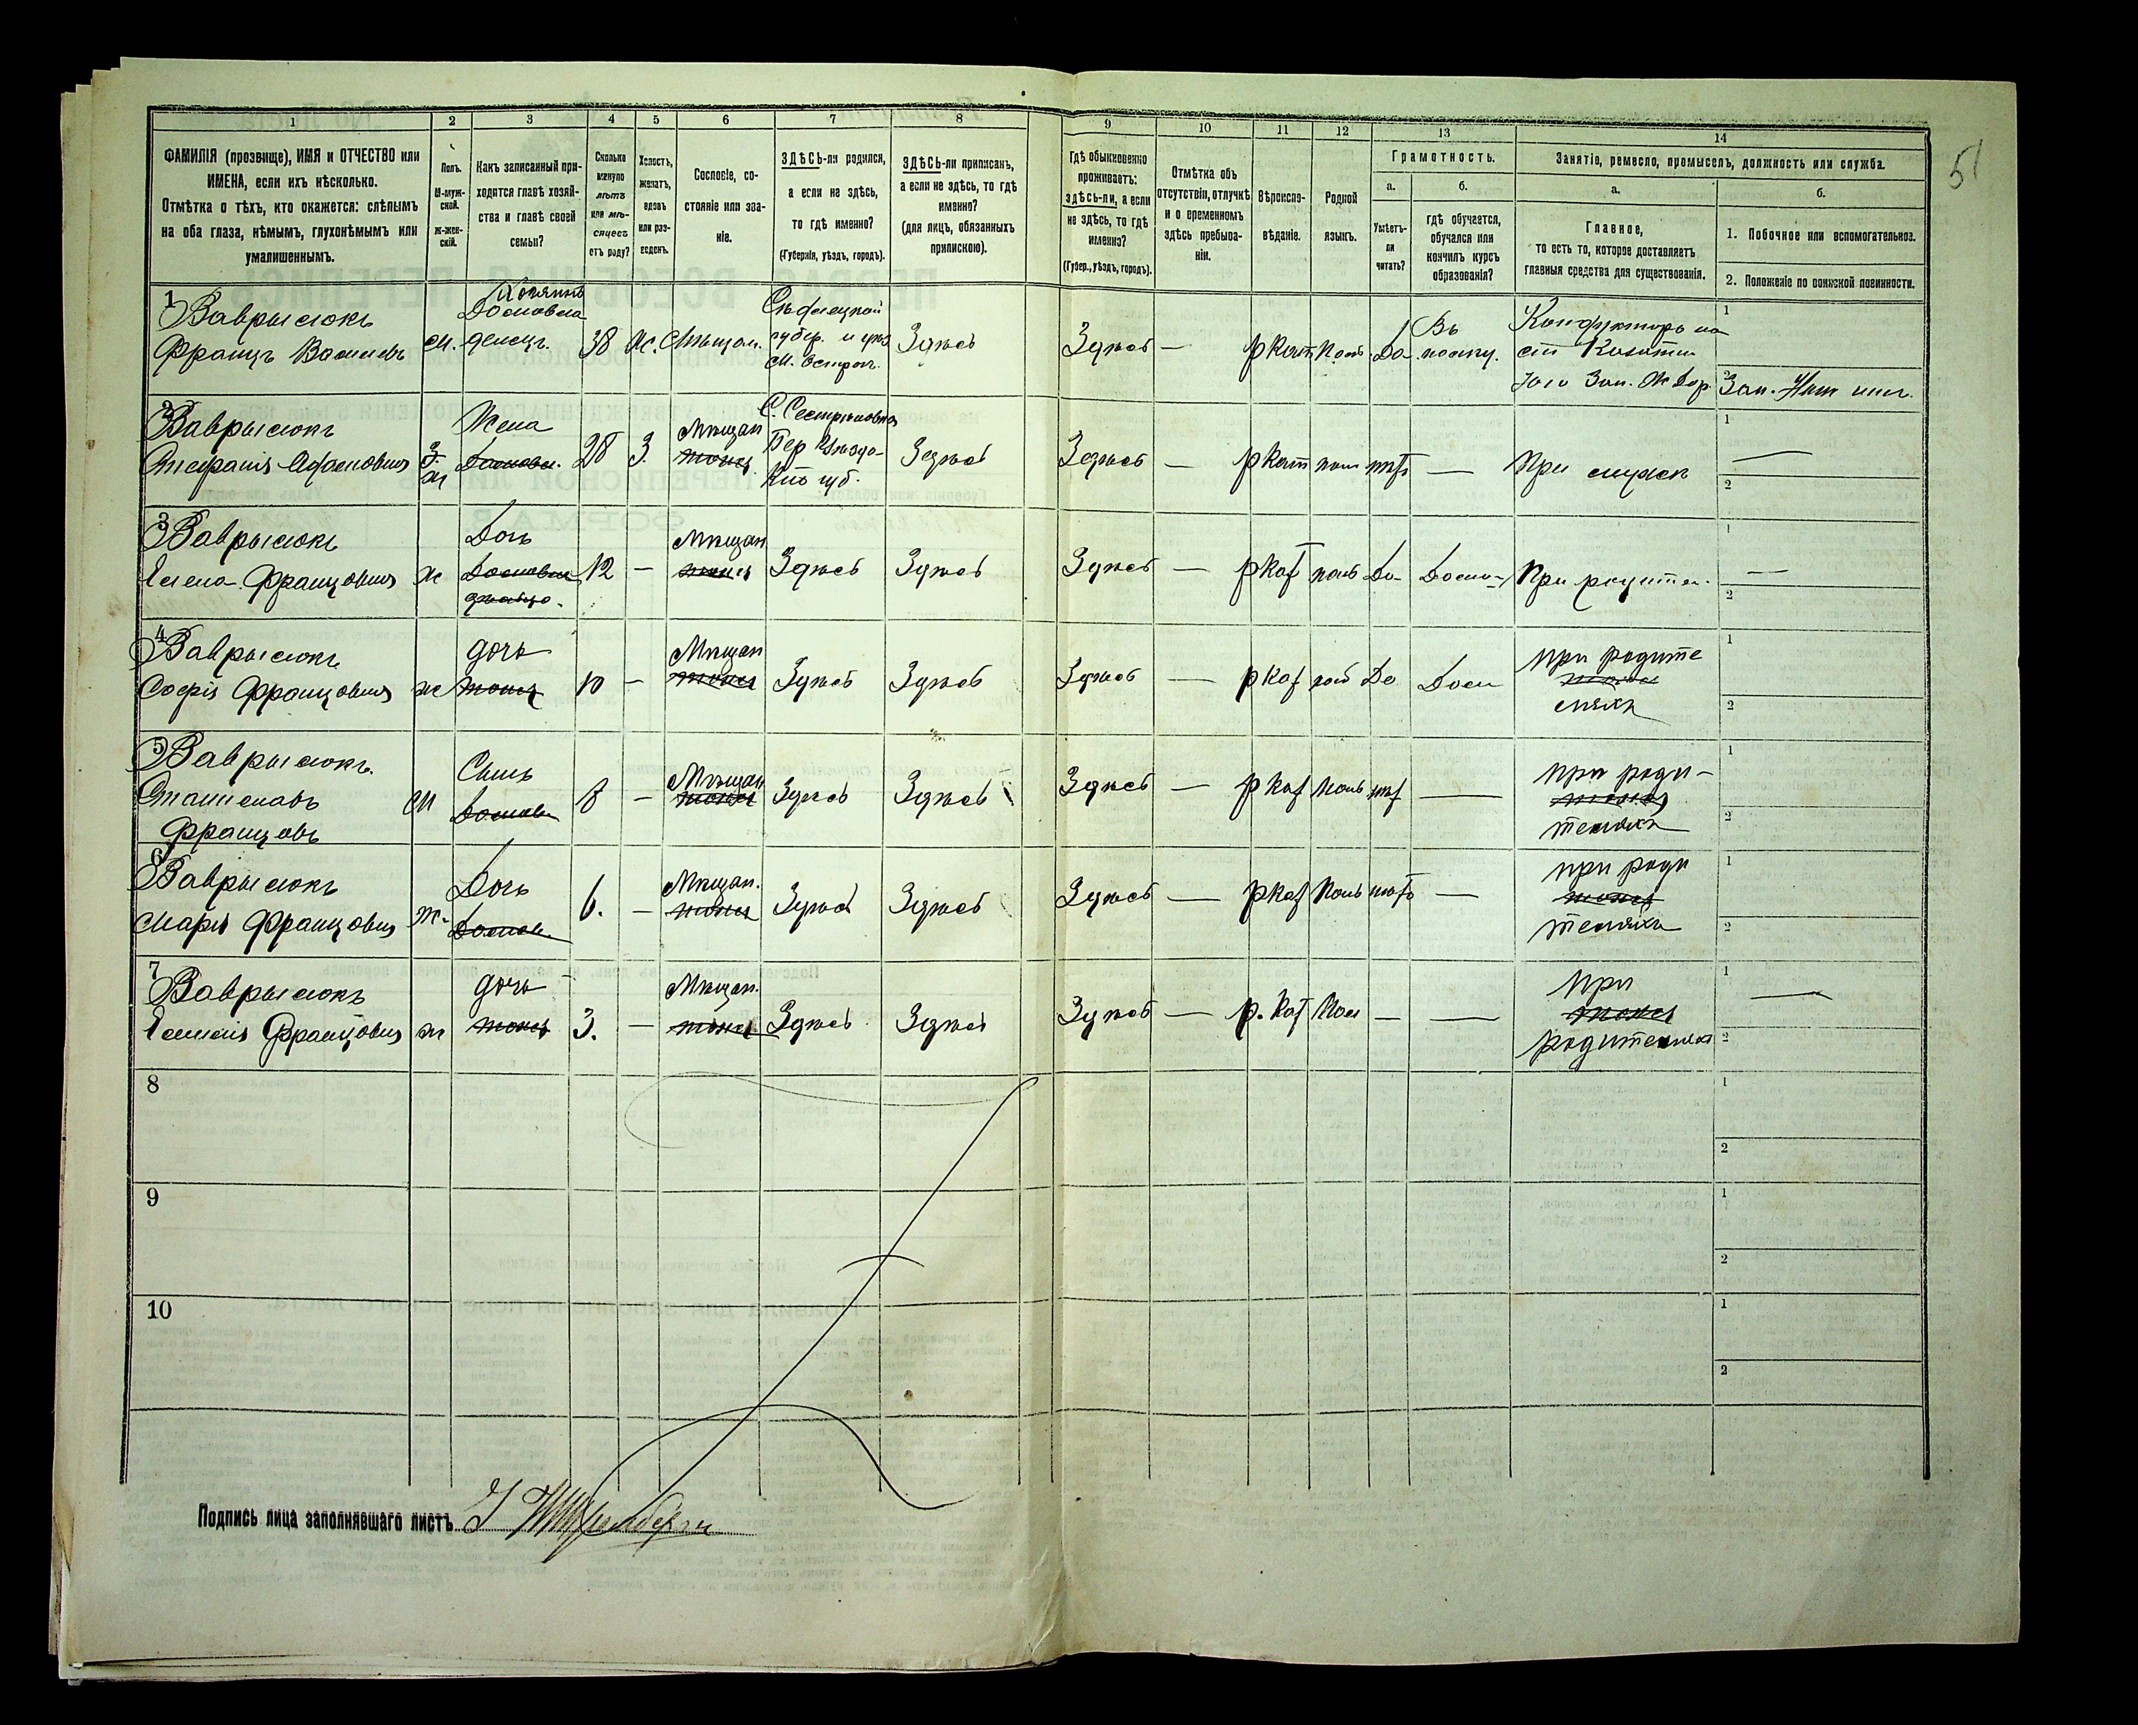 51
1 2 3 4 5 6 7 8 9 10 11 12 13 14
ФАМИЛІЯ (прозвище), ИМЯ и ОТЧЕСТВО или
ИМЕНА, если ихъ нѣсколько.
Отмѣтка о тѣхъ, кто окажется: слѣпымъ
на оба глаза, нѣмымъ, глухонѣмымъ или
умалишеннымъ.
Полъ.
М-муж-
ской.
Ж-жен-
скій.
Какъ записанный при-
ходится главѣ хозяй-
ства и главѣ своей
семьи?
Сколько
минуло
лѣтъ
или мѣ-
сяцевъ
отъ роду?
Холостъ,
женатъ,
вдовъ
или раз-
веденъ.
Сословіе, со-
стояніе или зва-
ніе.
ЗДѢСЬ-ли родился,
а если не здѣсь,
то гдѣ именно?
(Губернія, уѣздъ, городъ).
ЗДѢСЬ-ли приписанъ,
а если не здѣсь, то гдѣ
именно?
(для лицъ, обязанныхъ
припискою).
Гдѣ обыкновенно
проживаетъ:
здѣсь-ли, а если
не здѣсь, то гдѣ
именно?
(Губер., уѣздъ, городъ).
Отмѣтка объ
отсутствіи, отлучкѣ
и о временномъ
здѣсь пребыва-
ніи.
Вѣроиспо-
вѣданіе.
Родной
языкъ.
Грамотность.
а.
Умѣетъ-
ли
читать?
б.
гдѣ обучается,
обучался или
кончилъ курсъ
образованія?
Занятіе, ремесло, промыселъ, должность или служба.
а.
Главное,
то есть то, которое доставляетъ
главныя средства для существованія.
б.
1. Побочное или вспомогательное.
2. Положеніе по воинской повинности.
1 Ваврысюкъ
Францъ
м.
Хозяинъ
38
Ж.
Мѣщан.
Сѣдлецкой
губер. и уѣз
Здѣсь
Здѣсь —
р Кат
Поль
Да
Въ
полку.
Кондукторъ на
ст Казатин
Юго Зап. Ж Дор.
1
2 Зап. Ниж чин.
2 Ваврысюкъ
ж
Жена
28
З.
Мѣщан
тоже
Бер Уѣзда
Кіе губ.
Здѣсь
Здѣсь —
р Кат поль нѣтъ —
При мужѣ
1 —
2
3 Ваврысюкъ
Елена Францовна
ж
Дочь
12 —
Мѣщан
тоже
Здѣсь Здѣсь
Здѣсь —
р Кат поль Да Дома
При родител.
1 —
2
4 Ваврысюкъ
Софія Францовна
ж
дочь
тоже
10 —
Мѣщан
тоже
Здѣсь Здѣсь
Здѣсь —
р Кат поль Да Дома
При родите
тоже
ляхъ
1
2
5 Ваврысюкъ.
Станиславъ
Францовъ
м
Сынъ
8 —
Мѣщан
тоже
Здѣсь Здѣсь
Здѣсь —
р Кат Поль нѣт —
при роди-
тоже
теляхъ
1
2
6 Ваврысюкъ
Марія Францовна
ж.
Дочь
6. —
Мѣщан.
тоже
Здѣсь Здѣсь
Здѣсь —
р Кат Поль нѣтъ —
при роди
тоже
теляхъ
1
2
7 Ваврысюкъ
Францовна
ж
дочь
тоже
3. —
Мѣщан.
тоже
Здѣсь Здѣсь
Здѣсь —
р. Кат Пол — —
При
тоже
родителяхъ
1 —
2
8
1
2
9
1
2
10
1
2
Подпись лица заполнявшаго листъ